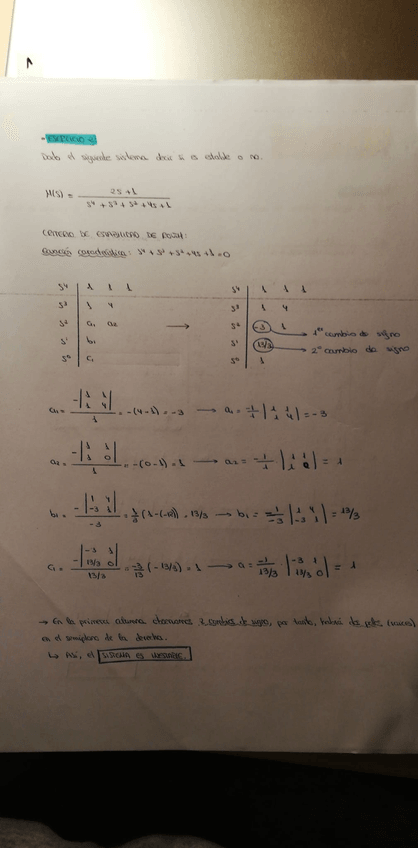 - EJERCICIO
Dado el siguiente sistema decir si es estable o no.
H(s) = (2s+1) / (s⁴ + s³ + s² + 4s + 1)
CRITERIO DE ESTABILIDAD DE ROUTH:
Ecuación característica: s⁴ + s³ + s² + 4s + 1 = 0
s⁴ | 1 1 1
s³ | 1 4
s² | a₁ a₂ →
s¹ | b₁
s⁰ | c₁
s⁴ | 1 1 1
s³ | 1 4
s² | -3 1 → 1º cambio de signo
s¹ | 13/3 → 2º cambio de signo
s⁰ | 1
a₁ = -|1 1; 1 4| / 1 = -(4-1) = -3 → a₁ = -1/1 |1 1; 1 4| = -3
a₂ = -|1 1; 1 0| / 1 = -(0-1) = 1 → a₂ = -1/1 |1 1; 1 0| = 1
b₁ = -|1 4; -3 1| / -3 = 1/3 (1-(-12)) = 13/3 → b₁ = -1/-3 |1 4; -3 1| = 13/3
c₁ = -|-3 1; 13/3 0| / 13/3 = -3/13 (-13/3) = 1 → c₁ = -1/13/3 · |-3 1; 13/3 0| = 1
→ En la primera columna observamos 2 cambios de signo, por tanto, habrá dos polos (raíces)
en el semiplano de la derecha.
↳ Así, el SISTEMA ES INESTABLE.